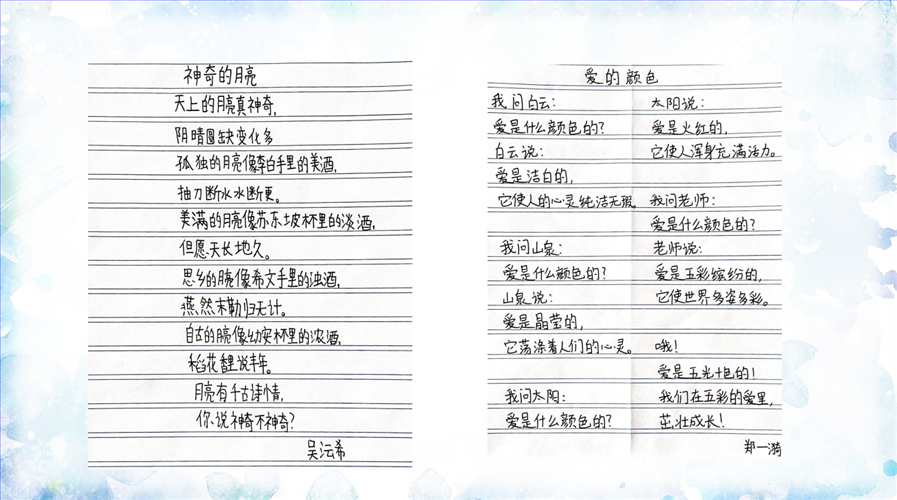 神奇的月亮
天上的月亮真神奇,
阴晴圆缺变化多
孤独的月亮像李白手里的美酒,
抽刀断水水断更。
美满的月亮像苏东坡杯里的淡酒,
但愿天长地久。
思乡的月亮像希文手里的浊酒,
燕然未勒归无计。
自古的月亮像幼安杯里的浓酒,
稻花香里说丰年。
月亮有千古诗情,
你说神奇不神奇?
吴沄希
爱的颜色
我问白云:
爱是什么颜色的?
白云说:
爱是洁白的,
它使人的心灵纯洁无瑕。
我问山泉:
爱是什么颜色的?
山泉说:
爱是晶莹的,
它荡涤着人们的心灵。
我问太阳:
爱是什么颜色的?
太阳说:
爱是火红的,
它使人浑身充满活力。
我问老师:
爱是什么颜色的?
老师说:
爱是五彩缤纷的,
它使世界多姿多彩。
哦!
爱是五光十色的!
我们在五彩的爱里,
茁壮成长!
郑一漪